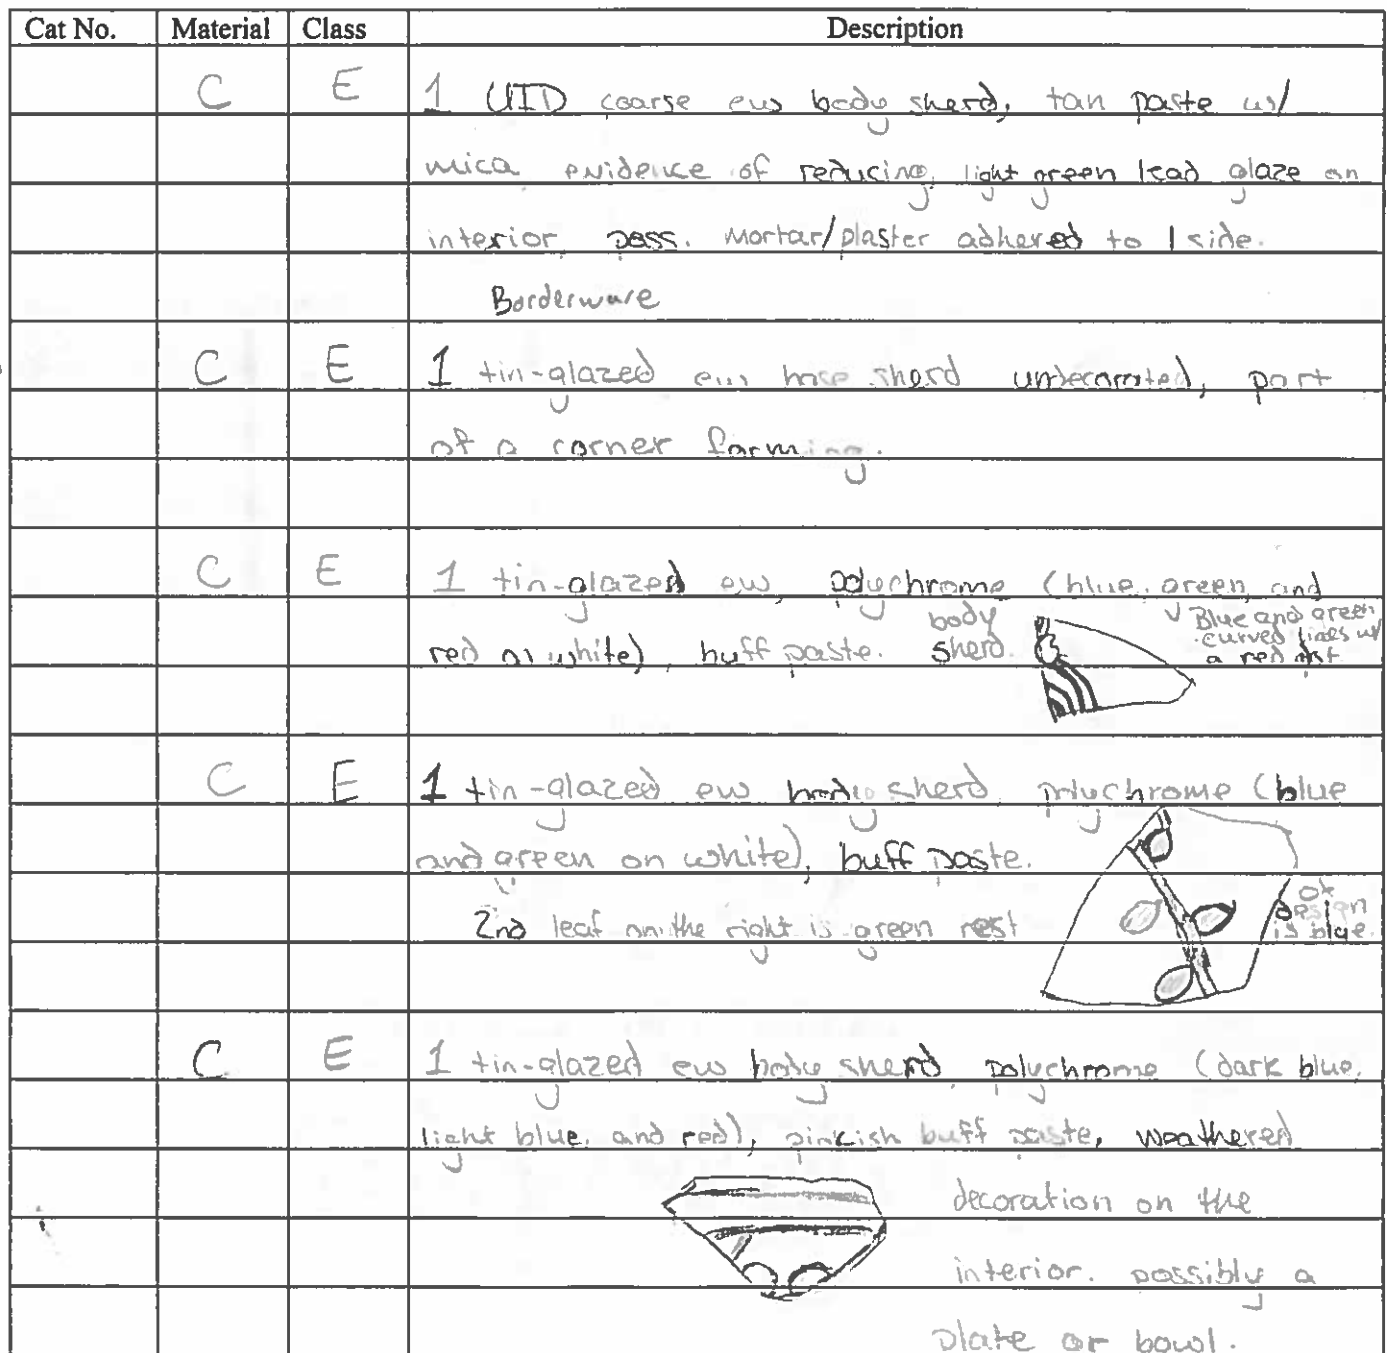 Cat No. Material Class Description
C E 1 UID coarse ew body sherd, tan paste w/
mica evidence of reducing, light green lead glaze on
interior, poss. mortar/plaster adhered to 1 side.
Borderware
C E 1 tin-glazed ew base sherd undecorated, part
of a corner forming.
C E 1 tin-glazed ew, polychrome (blue, green, and
red on white), buff paste. body sherd.
Blue and green
curved lines w/
a red dot
C E 1 tin-glazed ew body sherd, polychrome (blue
and green on white), buff paste.
2nd leaf on the right is green rest
of
design
is blue.
C E 1 tin-glazed ew body sherd, polychrome (dark blue,
light blue, and red), pinkish buff paste, weathered
decoration on the
interior. possibly a
plate or bowl.